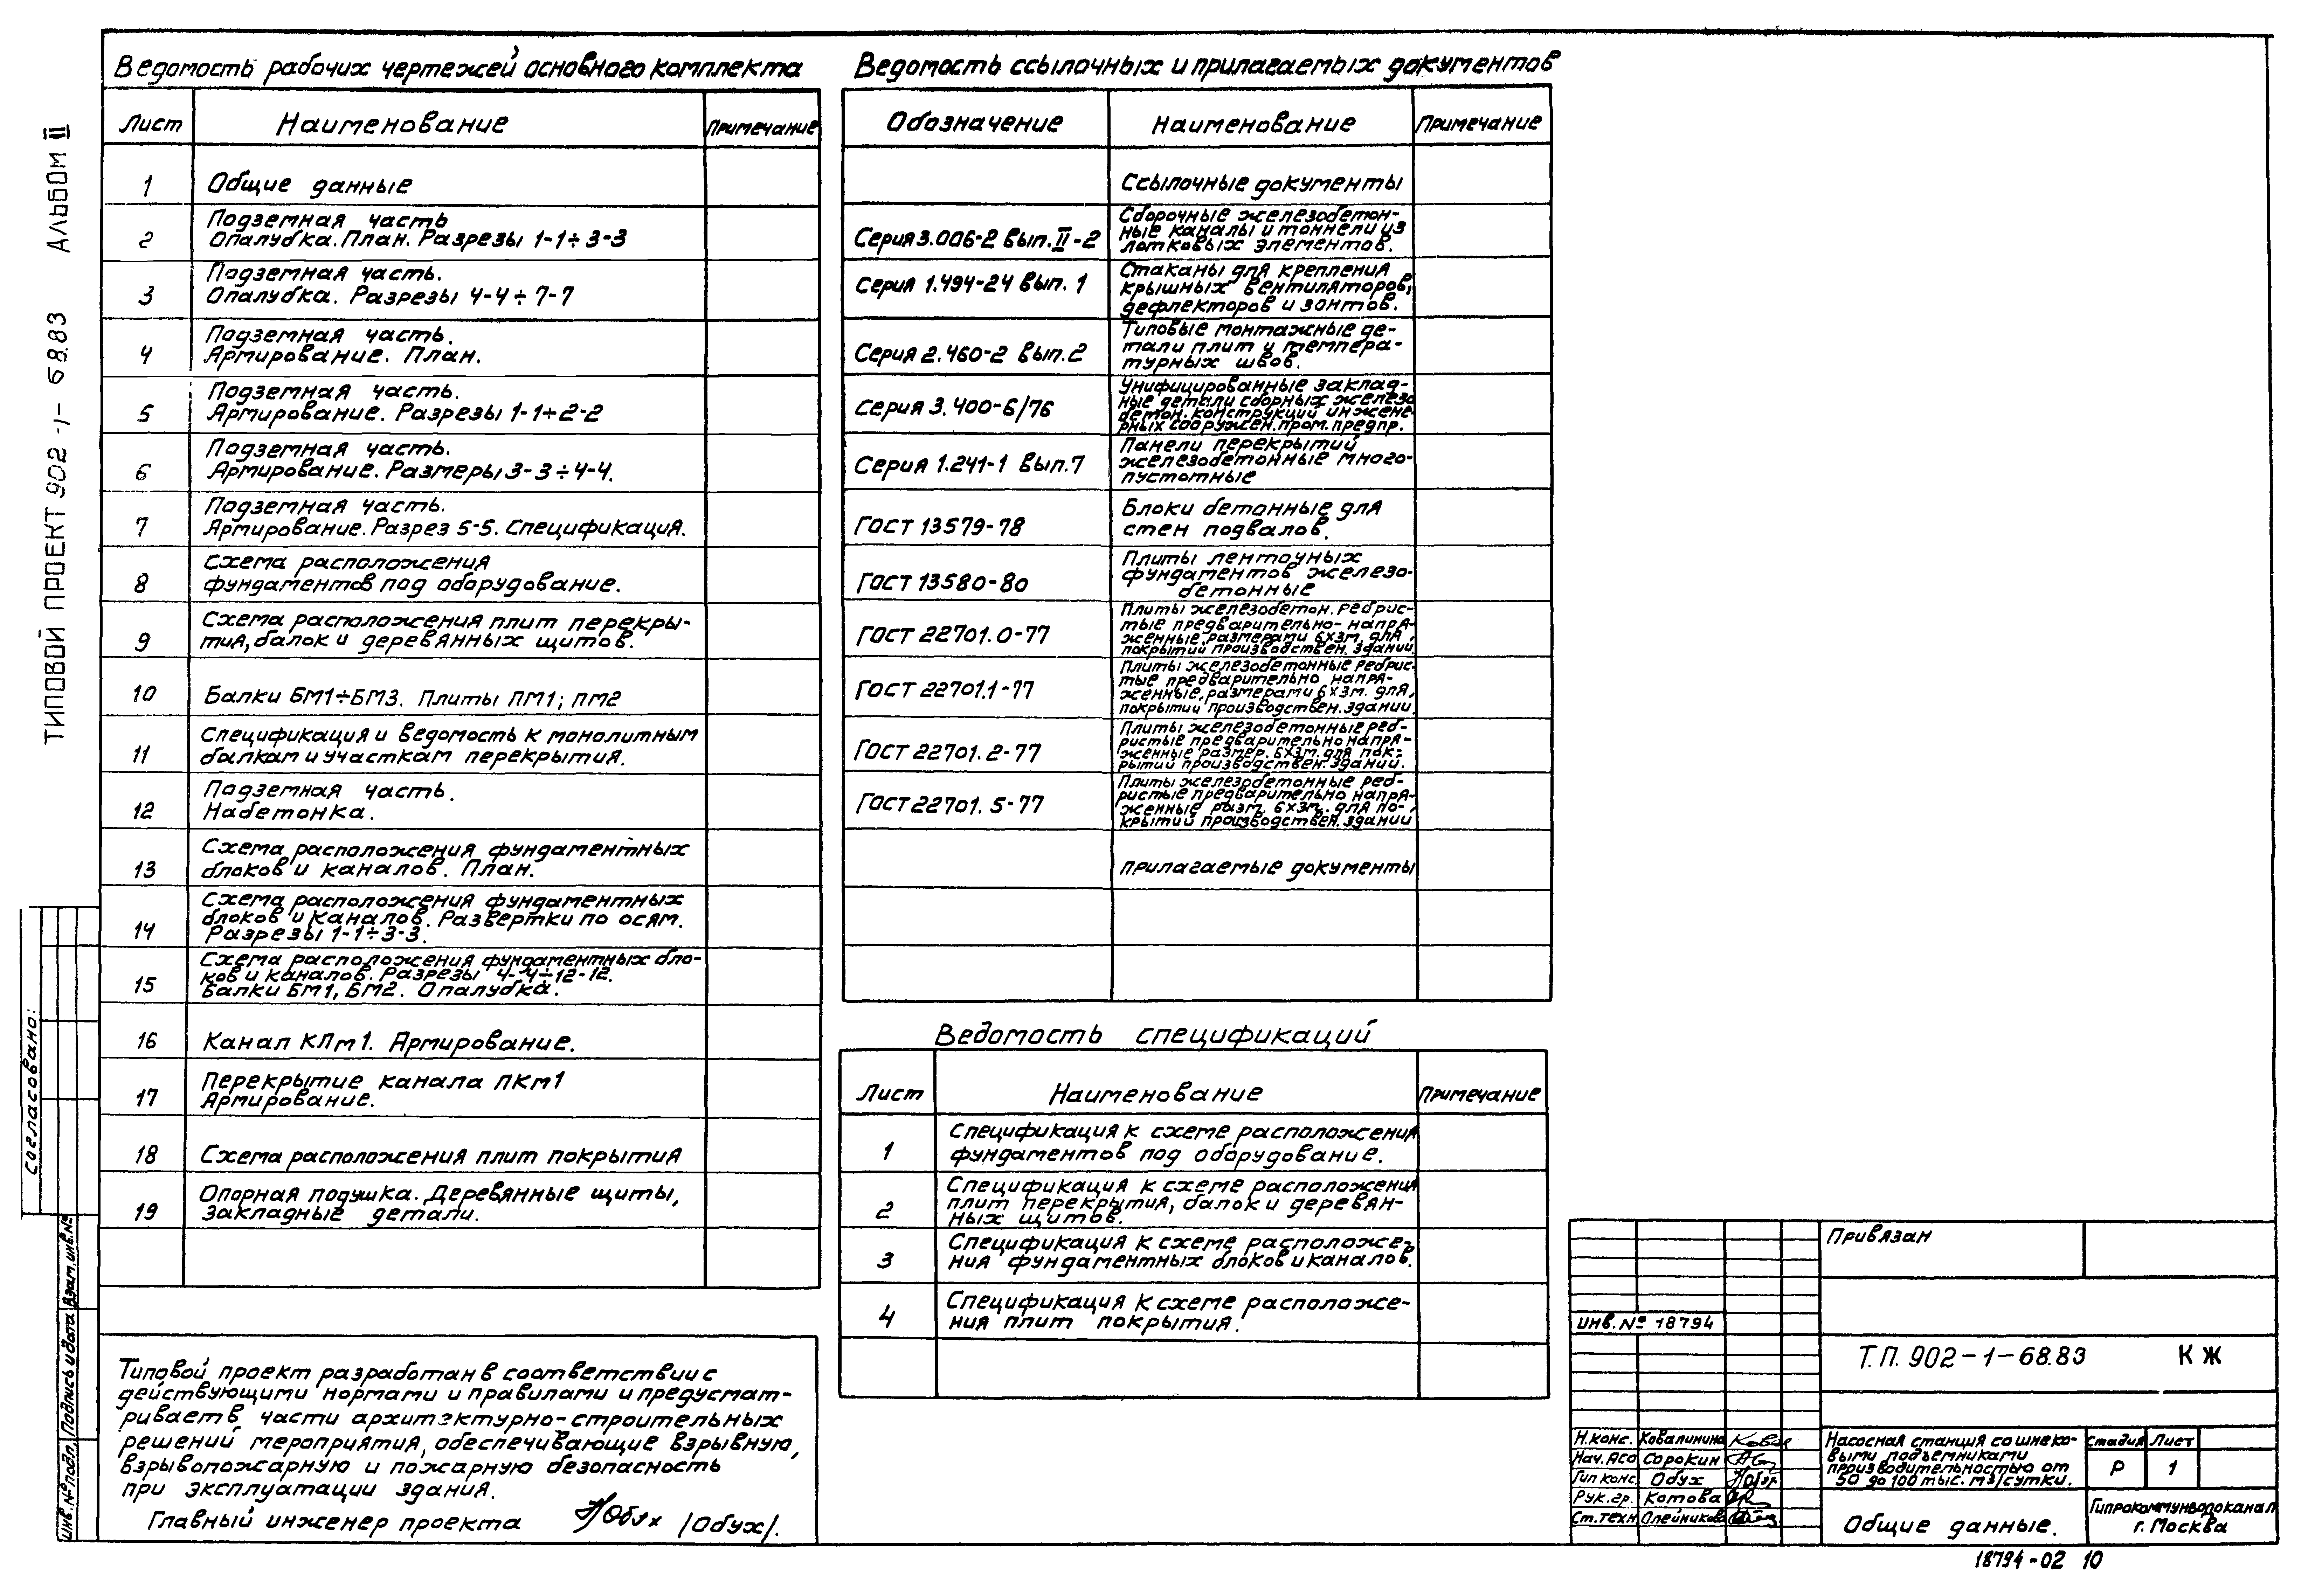 ТИПОВОЙ ПРОЕКТ 902-1-68.83 АЛЬБОМ II
Ведомость рабочих чертежей основного комплекта
Лист Наименование Примечание
1 Общие данные
2 Подземная часть
Опалубка. План. Разрезы 1-1÷3-3
3 Подземная часть.
Опалубка. Разрезы 4-4÷7-7
4 Подземная часть.
Армирование. План.
5 Подземная часть.
Армирование. Разрезы 1-1÷2-2
6 Подземная часть.
Армирование. Размеры 3-3÷4-4.
7 Подземная часть.
Армирование. Разрез 5-5. Спецификация.
8 Схема расположения
фундаментов под оборудование.
9 Схема расположения плит перекры-
тия, балок и деревянных щитов.
10 Балки БМ1÷БМ3. Плиты ПМ1; ПМ2
11 Спецификация и ведомость к монолитным
балкам и участкам перекрытия.
12 Подземная часть.
Набетонка.
13 Схема расположения фундаментных
блоков и каналов. План.
14 Схема расположения фундаментных
блоков и каналов. Развертки по осям.
Разрезы 1-1÷3-3.
15 Схема расположения фундаментных бло-
ков и каналов. Разрезы 4-4÷12-12.
Балки БМ1, БМ2. Опалубка.
16 Канал КЛм1. Армирование.
17 Перекрытие канала ПКм1
Армирование.
18 Схема расположения плит покрытия
19 Опорная подушка. Деревянные щиты,
закладные детали.
Типовой проект разработан в соответствии с
действующими нормами и правилами и предусмат-
ривает в части архитектурно-строительных
решений мероприятия, обеспечивающие взрывную,
взрывопожарную и пожарную безопасность
при эксплуатации здания.
Главный инженер проекта Обух /Обух/.
Ведомость ссылочных и прилагаемых документов
Обозначение Наименование Примечание
Ссылочные документы
Серия 3.006-2 вып. II-2 Сборочные железобетон-
ные каналы и тоннели из
лотковых элементов.
Серия 1.494-24 вып. 1 Стаканы для крепления
крышных вентиляторов,
дефлекторов и зонтов.
Серия 2.460-2 вып. 2 Типовые монтажные де-
тали плит и темпера-
турных швов.
Серия 3.400-6/76 Унифицированные заклад-
ные детали сборных железо
бетон. конструкций инжене-
рных сооружен. пром. предпр.
Серия 1.241-1 вып. 7 Панели перекрытий
железобетонные много-
пустотные
ГОСТ 13579-78 Блоки бетонные для
стен подвалов.
ГОСТ 13580-80 Плиты ленточных
фундаментов железо-
бетонные
ГОСТ 22701.0-77 Плиты железобетон. ребрис-
тые предварительно-напря-
женные, размерами 6х3м, для
покрытий производствен. зданий.
ГОСТ 22701.1-77 Плиты железобетонные ребрис-
тые предварительно напря-
женные, размерами 6х3м. для
покрытий производствен. зданий
ГОСТ 22701.2-77 Плиты железобетонные реб-
ристые предварительно напря-
женные размер. 6х3м. для пок-
рытий производствен. зданий.
ГОСТ 22701.5-77 Плиты железобетонные реб-
ристые предварительно напря-
женные разм. 6х3м. для по-
крытий производствен. зданий
прилагаемые документы
Ведомость спецификаций
Лист Наименование Примечание
1 Спецификация к схеме расположения
фундаментов под оборудование.
2 Спецификация к схеме расположения
плит перекрытия, балок и деревян-
ных щитов.
3 Спецификация к схеме расположе-
ния фундаментных блоков и каналов.
4 Спецификация к схеме расположе-
ния плит покрытия.
Согласовано:
Инв. № подл. Подпись и дата Взам. инв. №
Привязан
инв. № 18794
Т.П. 902-1-68.83 КЖ
Н.конс. Ковалинина
Нач. АСО Сорокин
Гип конс. Обух
Рук. гр. Котова
Ст. техн Олейникова
Насосная станция со шнеко-
выми подъемниками
производительностью от
50 до 100 тыс. м3/сутки.
Стадия Лист
Р 1
Общие данные.
Гипрокоммунводоканал
г. Москва
18794-02 10